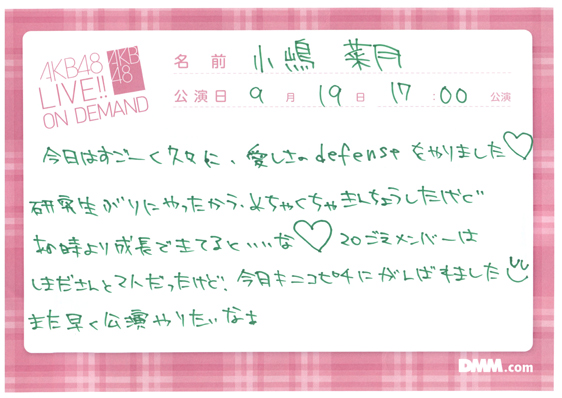 AKB48
LIVE!!
ON DEMAND
AKB
48
名前 小嶋 菜月
公演日 9月19日 17:00 公演
今日はすごーく久々に、愛しさのdefenseをやりました♡
研究生ぶりにやったから、めちゃくちゃきんちょうしたけど
あの時より成長できてるといいな♡ 20ごえメンバーは
しまださんと2人だったけど、今日も元気にがんばりました
また早く公演やりたいなぁ
DMM.com